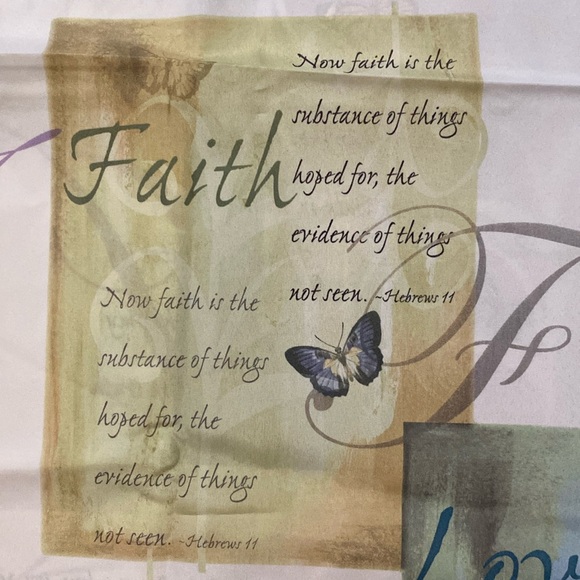 Faith
Now faith is the
substance of things
hoped for, the
evidence of things
not seen. ~Hebrews 11
Now faith is the
substance of things
hoped for, the
evidence of things
not seen. ~Hebrews 11